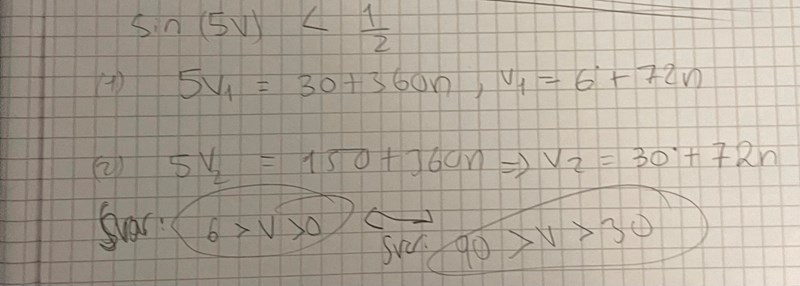 sin (5v) < 1/2
(1) 5v₁ = 30 + 360n, v₁ = 6° + 72n
(2) 5v₂ = 150 + 360n ⇒ v₂ = 30° + 72n
Svar: 6 > v > 0 ⟷ Svar: 90 > v > 30